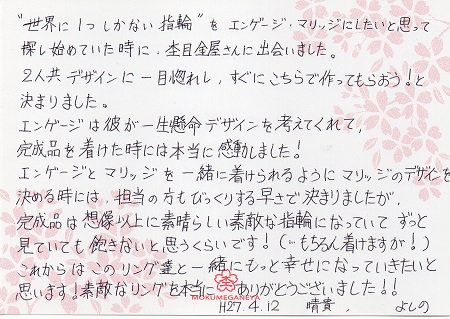 "世界に1つしかない指輪"を エンゲージ・マリッジにしたいと思って
探し始めていた時に、杢目金屋さんに出会いました。
2人共デザインに一目惚れし、すぐにこちらで作ってもらおう!と
決まりました。
エンゲージは彼が一生懸命デザインを考えてくれて、
完成品を着けた時には本当に感動しました!
エンゲージとマリッジを一緒に着けられるようにマリッジのデザインを
決める時には、担当の方もびっくりする早さで決まりましたが、
完成品は想像以上に素晴らしい素敵な指輪になっていて ずっと
見ていても飽きないと思うくらいです!(もちろん着けますが!)
これからはこのリング達と一緒にもっと幸せになっていきたいと
思います!素敵なリングを本当にありがとうございました!!
MOKUMEGANEYA
H27.4.12 晴貴、よしの